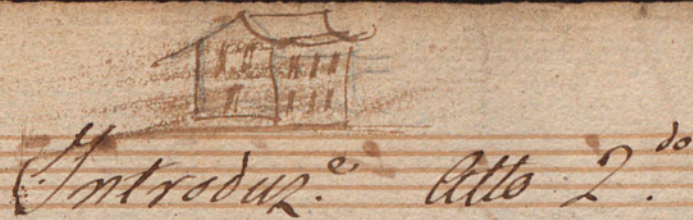 Introduz.e Atto 2.do